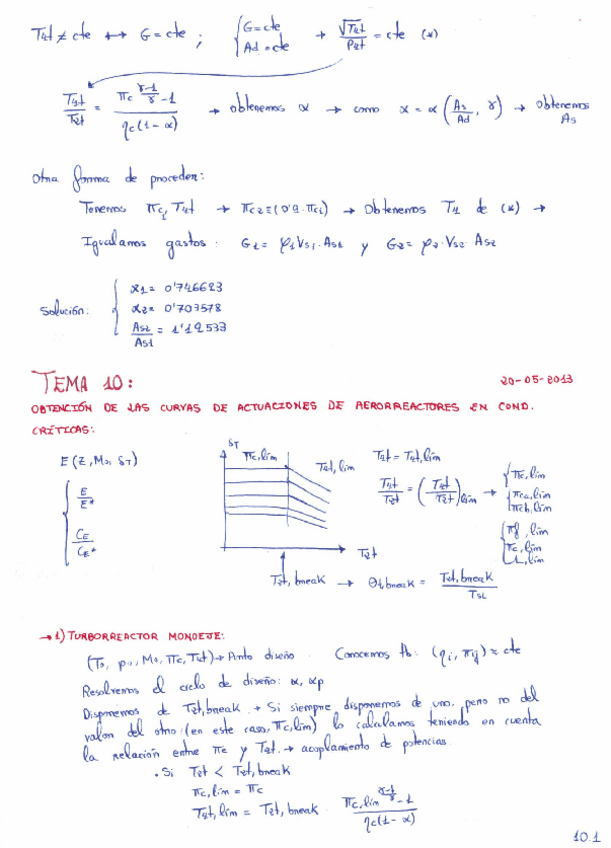 T4t ≠ cte ↔ G = cte ; { G = cte Ad = cte → √T4t / P4t = cte (*)
T4t/T2t = (πc^((γ-1)/γ) - 1) / (ηc(1-α)) → obtenemos α → como α = α (As/Ad, γ) → Obtenemos As
Otra forma de proceder:
Tenemos πc1, T4t → πc2 = (0'9·πc1) → Obtenemos T4 de (*) →
Igualamos gastos: G1 = φ1 Vs1·As1 y G2 = φ2·Vs2·As2
Solución: { α1 = 0'746623
α2 = 0'703578
As2/As1 = 1'12533
TEMA 10: 20-05-2013
OBTENCIÓN DE LAS CURVAS DE ACTUACIONES DE AERORREACTORES EN COND.
CRÍTICAS:
E (Z, M0, δT)
{ E/E*
CE/CE*
δT πc,lim T4t,lim
T2t
T2t,break → θt,break = T2t,break / TSL
T4t = T4t,lim
T4t/T2t = (T4t/T2t)lim → { πc,lim πca,lim πcb,lim
{ πf,lim πc,lim
→ 1) TURBORREACTOR MONOEJE:
(T0, p0, M0, πc, T4t) → Punto diseño. Conocemos tb: (ηi, πij) ≈ cte
Resolvemos el ciclo de diseño: α, αp
Disponemos de T2t,break → Si siempre disponemos de uno, pero no del
valor del otro (en este caso, πc,lim) lo calculamos teniendo en cuenta
la relación entre πc y T2t. → acoplamiento de potencias.
• Si T2t < T2t,break
πc,lim = πc
T4t,lim = T2t,break · (πc,lim^((γ-1)/γ) - 1) / (ηc(1-α))
10.1